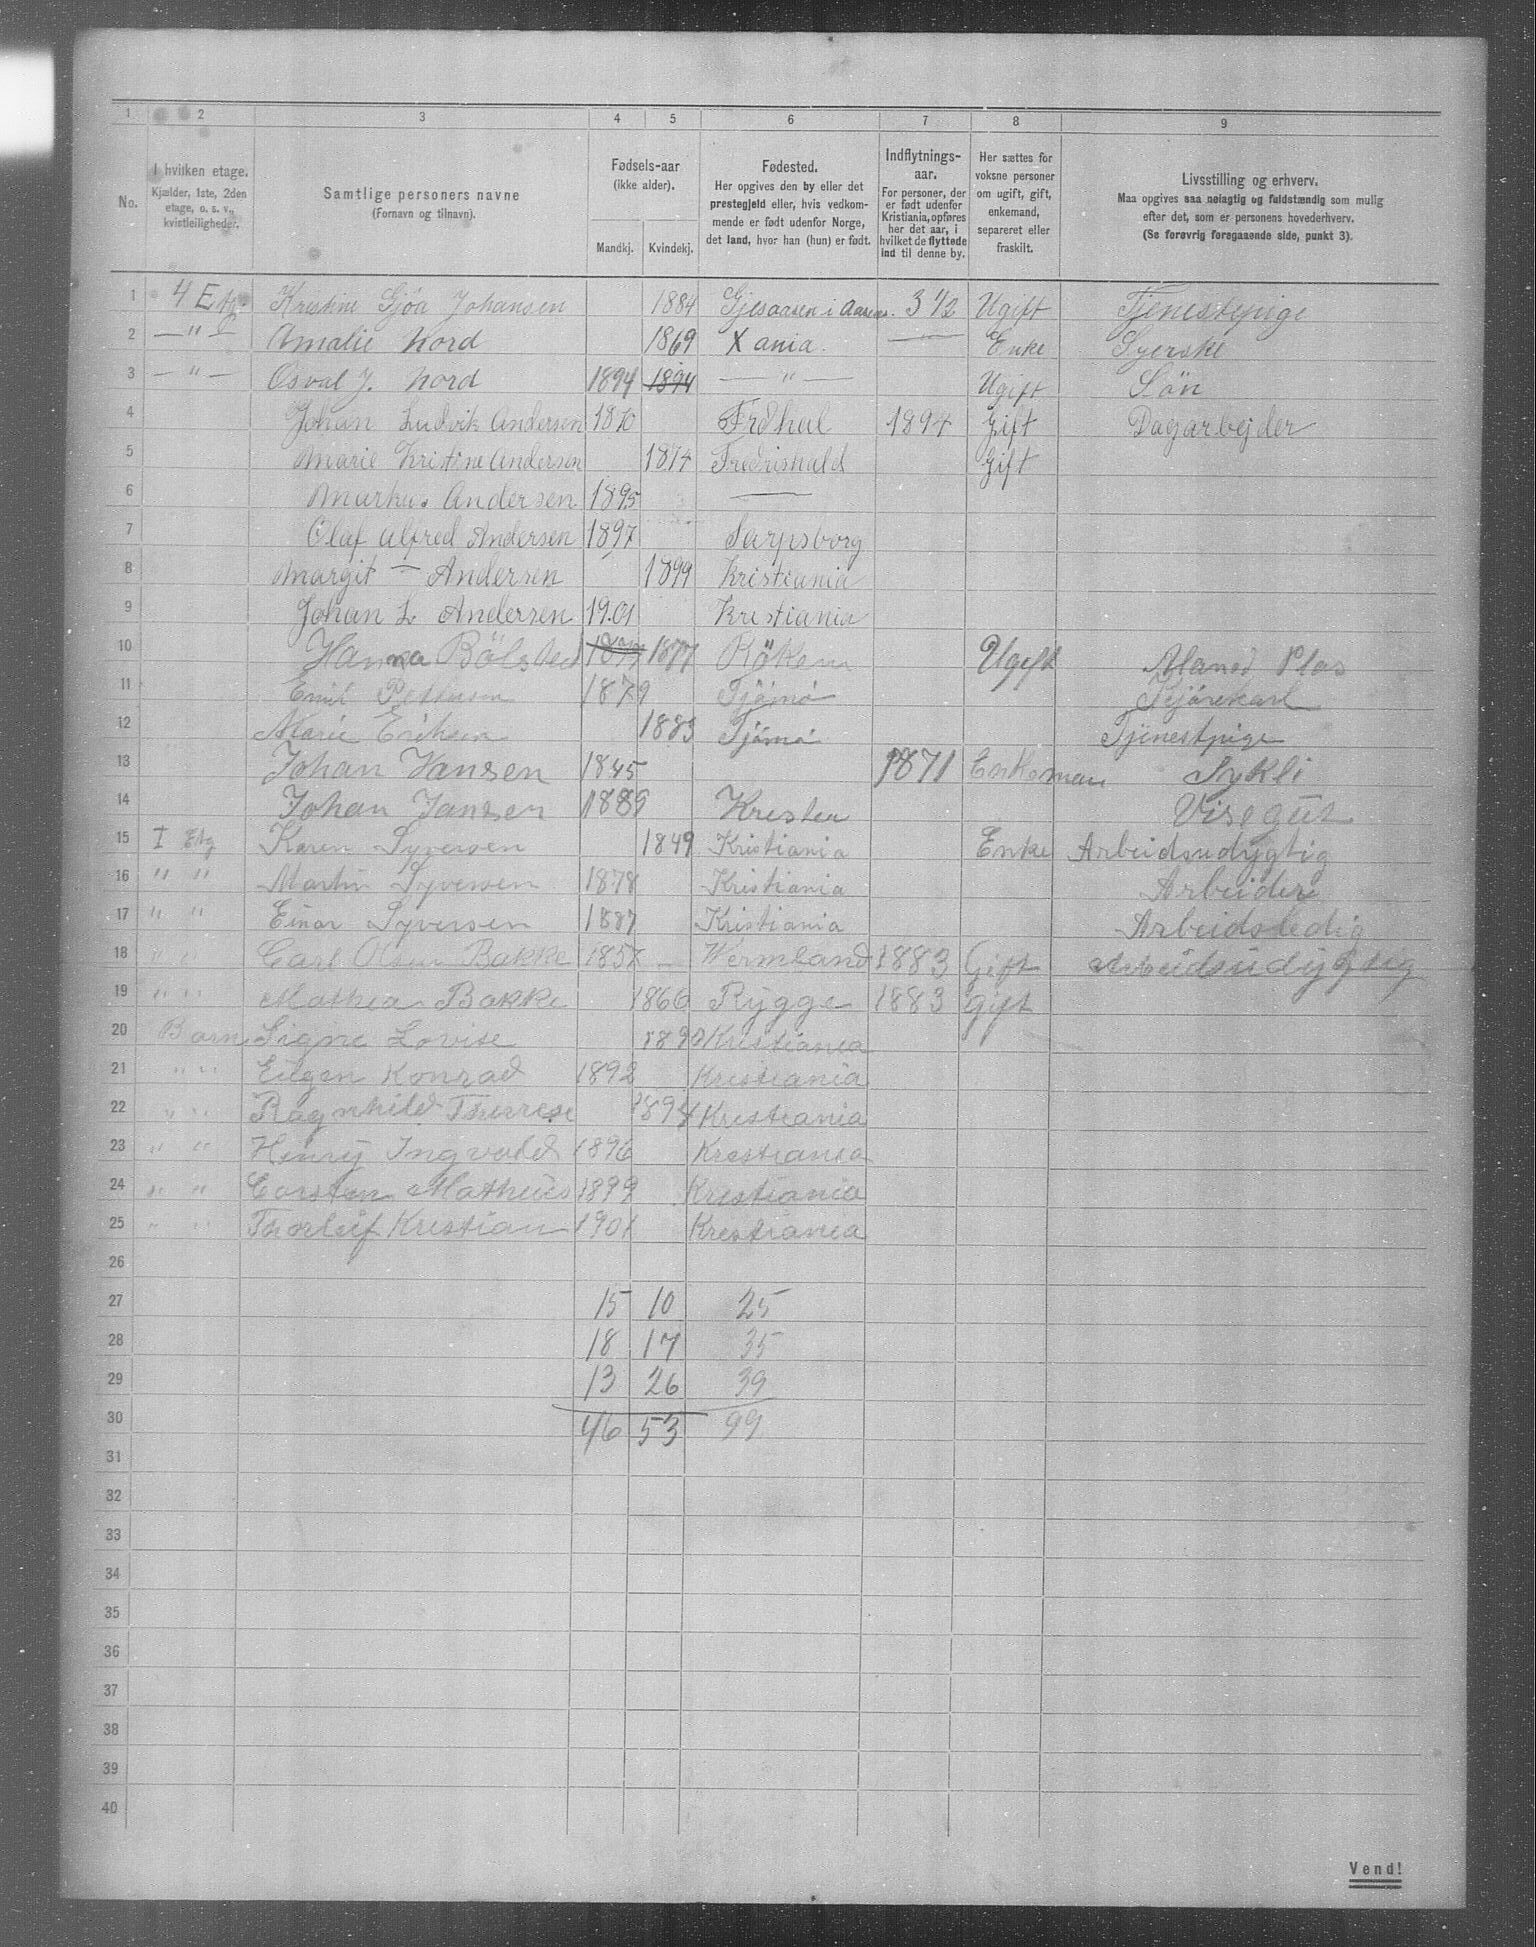 1 2 3 4 5 6 7 8 9
No.
I hvilken etage.
Kjælder, 1ste, 2den
etage, o. s. v.,
kvistleiligheder.
Samtlige personers navne
(Fornavn og tilnavn).
Fødsels-aar
(ikke alder).
Mandkj. Kvindekj.
Fødested.
Her opgives den by eller det
prestegjeld eller, hvis vedkom-
mende er født udenfor Norge,
det land, hvor han (hun) er født.
Indflytnings-
aar.
For personer, der
er født udenfor
Kristiania, opføres
her det aar, i
hvilket de flyttede
ind til denne by.
Her sættes for
voksne personer
om ugift, gift,
enkemand,
separeret eller
fraskilt.
Livsstilling og erhverv.
Maa opgives saa nøiagtig og fuldstændig som mulig
efter det, som er personens hovederhverv.
(Se forøvrig foregaaende side, punkt 3).
1 4 Etg. Kristine Gjöa Johansen 1884 Gjesaasen i Aasnes. 3 1/2 Ugift Tjenestepige
2 — " — Amalie Nord 1869 Xania. — Enke Syerske
3 — " — Osval J. Nord 1894 1894 — " — Ugift Sön
4 Johan Ludvik Andersen 1870 Frdhal 1894 Gift Dagarbejder
5 Marie Kristine Andersen 1874 Fredrishald Gift
6 Markus Andersen 1895 —
7 Olaf Alfred Andersen 1897 Sarpsborg
8 Margit — Andersen 1899 Kristiania
9 Johan L. Andersen 1901 Kristiania
10 Hanna Bölsted 1877 Röken Ugift
11 Emil Pettersen 1879 Tjömö Kjörekarl
12 Marie Eriksen 1883 Tjömö Tjenestpige
13 Johan Jansen 1845 1871 Enkeman Sykli
14 Johan Jansen 1889 Kristen Visegut
15 I Etg Karen Syversen 1849 Kristiania Enke Arbeidsudygtig
16 " " Martin Syversen 1878 Kristiania Arbeider
17 " " Einar Syversen 1887 Kristiania Arbeidsledig
18 " " Carl Olsen Bakke 1857 — Wermland 1883 Gift Arbeidsudygtig
19 " " Mathea Bakke 1866 Rygge 1883 gift
20 Barn Signe Lovise 1890 Kristiania
21 " " Eugen Konrad 1892 Kristiania
22 " " Ragnhild Therese 1894 Kristiania
23 " " Henry Ingvald 1896 Kristiania
24 " " Carsten Matheus 1899 Kristiania
25 " " Thorleif Kristian 1901 Kristiania
26
27 15 10 25
28 18 17 35
29 13 26 39
30 46 53 99
31
32
33
34
35
36
37
38
39
40
Vend!